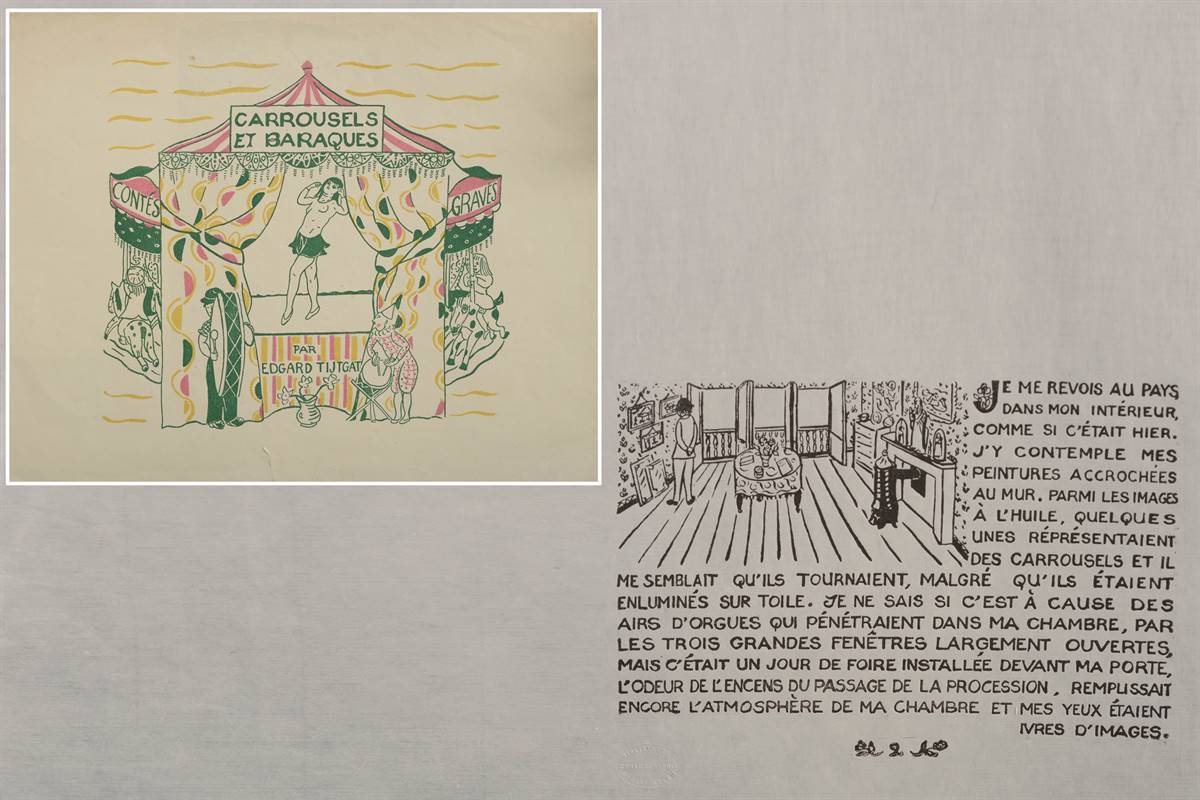 CARROUSELS
ET BARAQUES
CONTÉS
GRAVÉS
PAR
EDGARD TIJTGAT
JE ME REVOIS AU PAYS
DANS MON INTÉRIEUR,
COMME SI C'ÉTAIT HIER.
J'Y CONTEMPLE MES
PEINTURES ACCROCHÉES
AU MUR. PARMI LES IMAGES
À L'HUILE, QUELQUES
UNES RÉPRÉSENTAIENT
DES CARROUSELS ET IL
ME SEMBLAIT QU'ILS TOURNAIENT, MALGRÉ QU'ILS ÉTAIENT
ENLUMINÉS SUR TOILE. JE NE SAIS SI C'EST À CAUSE DES
AIRS D'ORGUES QUI PÉNÉTRAIENT DANS MA CHAMBRE, PAR
LES TROIS GRANDES FENÊTRES LARGEMENT OUVERTES,
MAIS C'ÉTAIT UN JOUR DE FOIRE INSTALLÉE DEVANT MA PORTE,
L'ODEUR DE L'ENCENS DU PASSAGE DE LA PROCESSION, REMPLISSAIT
ENCORE L'ATMOSPHÈRE DE MA CHAMBRE ET MES YEUX ÉTAIENT
IVRES D'IMAGES.
2